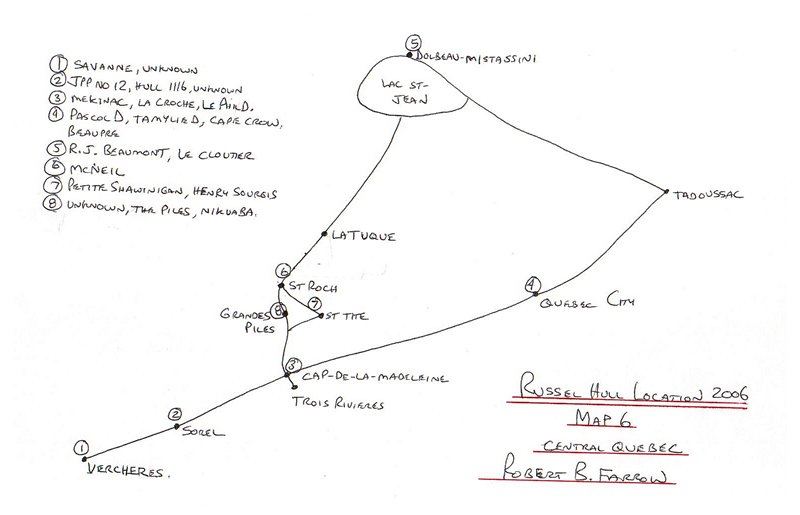 ① SAVANNE, UNKNOWN
② JPP NO 12, HULL 1116, UNKNOWN
③ MEKINAC, LA CROCHE, LE AIRD.
④ PASCOL D, TAMYLIE D, CAPE CROW,
BEAUPRE
⑤ R.J. BEAUMONT, LE CLOUTIER
⑥ MCNEIL
⑦ PETITE SHAWINIGAN, HENRY SOURGIS
⑧ UNKNOWN, THE PILES, NIKUABA.
⑤
DOLBEAU-MISTASSINI
LAC ST-
JEAN
TADOUSSAC
LA TUQUE
⑥
ST ROCH
④
QUEBEC CITY
⑦
ST TITE
⑧
GRANDES
PILES
③
CAP-DE-LA-MADELEINE
TROIS RIVIERES
②
SOREL
①
VERCHERES.
RUSSEL HULL LOCATION 2006
MAP 6
CENTRAL QUEBEC
ROBERT B. FARROW